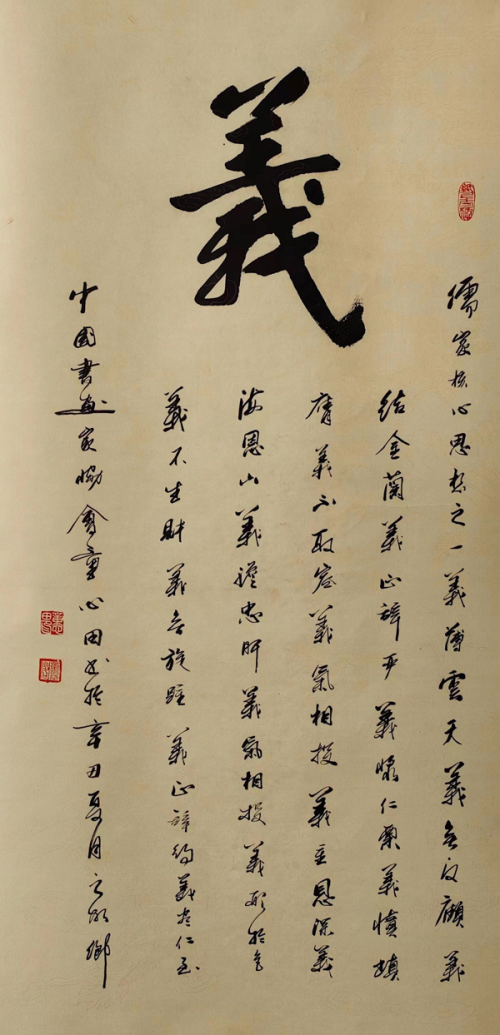 義
儒家核心思想之一義薄雲天義無反顧義
結金蘭義正辭严義漿仁粟義憤填
膺義不取容義氣相投義重恩深義
海恩山義膽忠肝義氣相投義形於色
義不生財義無旋踵義正辭約義盡仁至
中國書畫家協會童心田書於辛丑夏月鄉